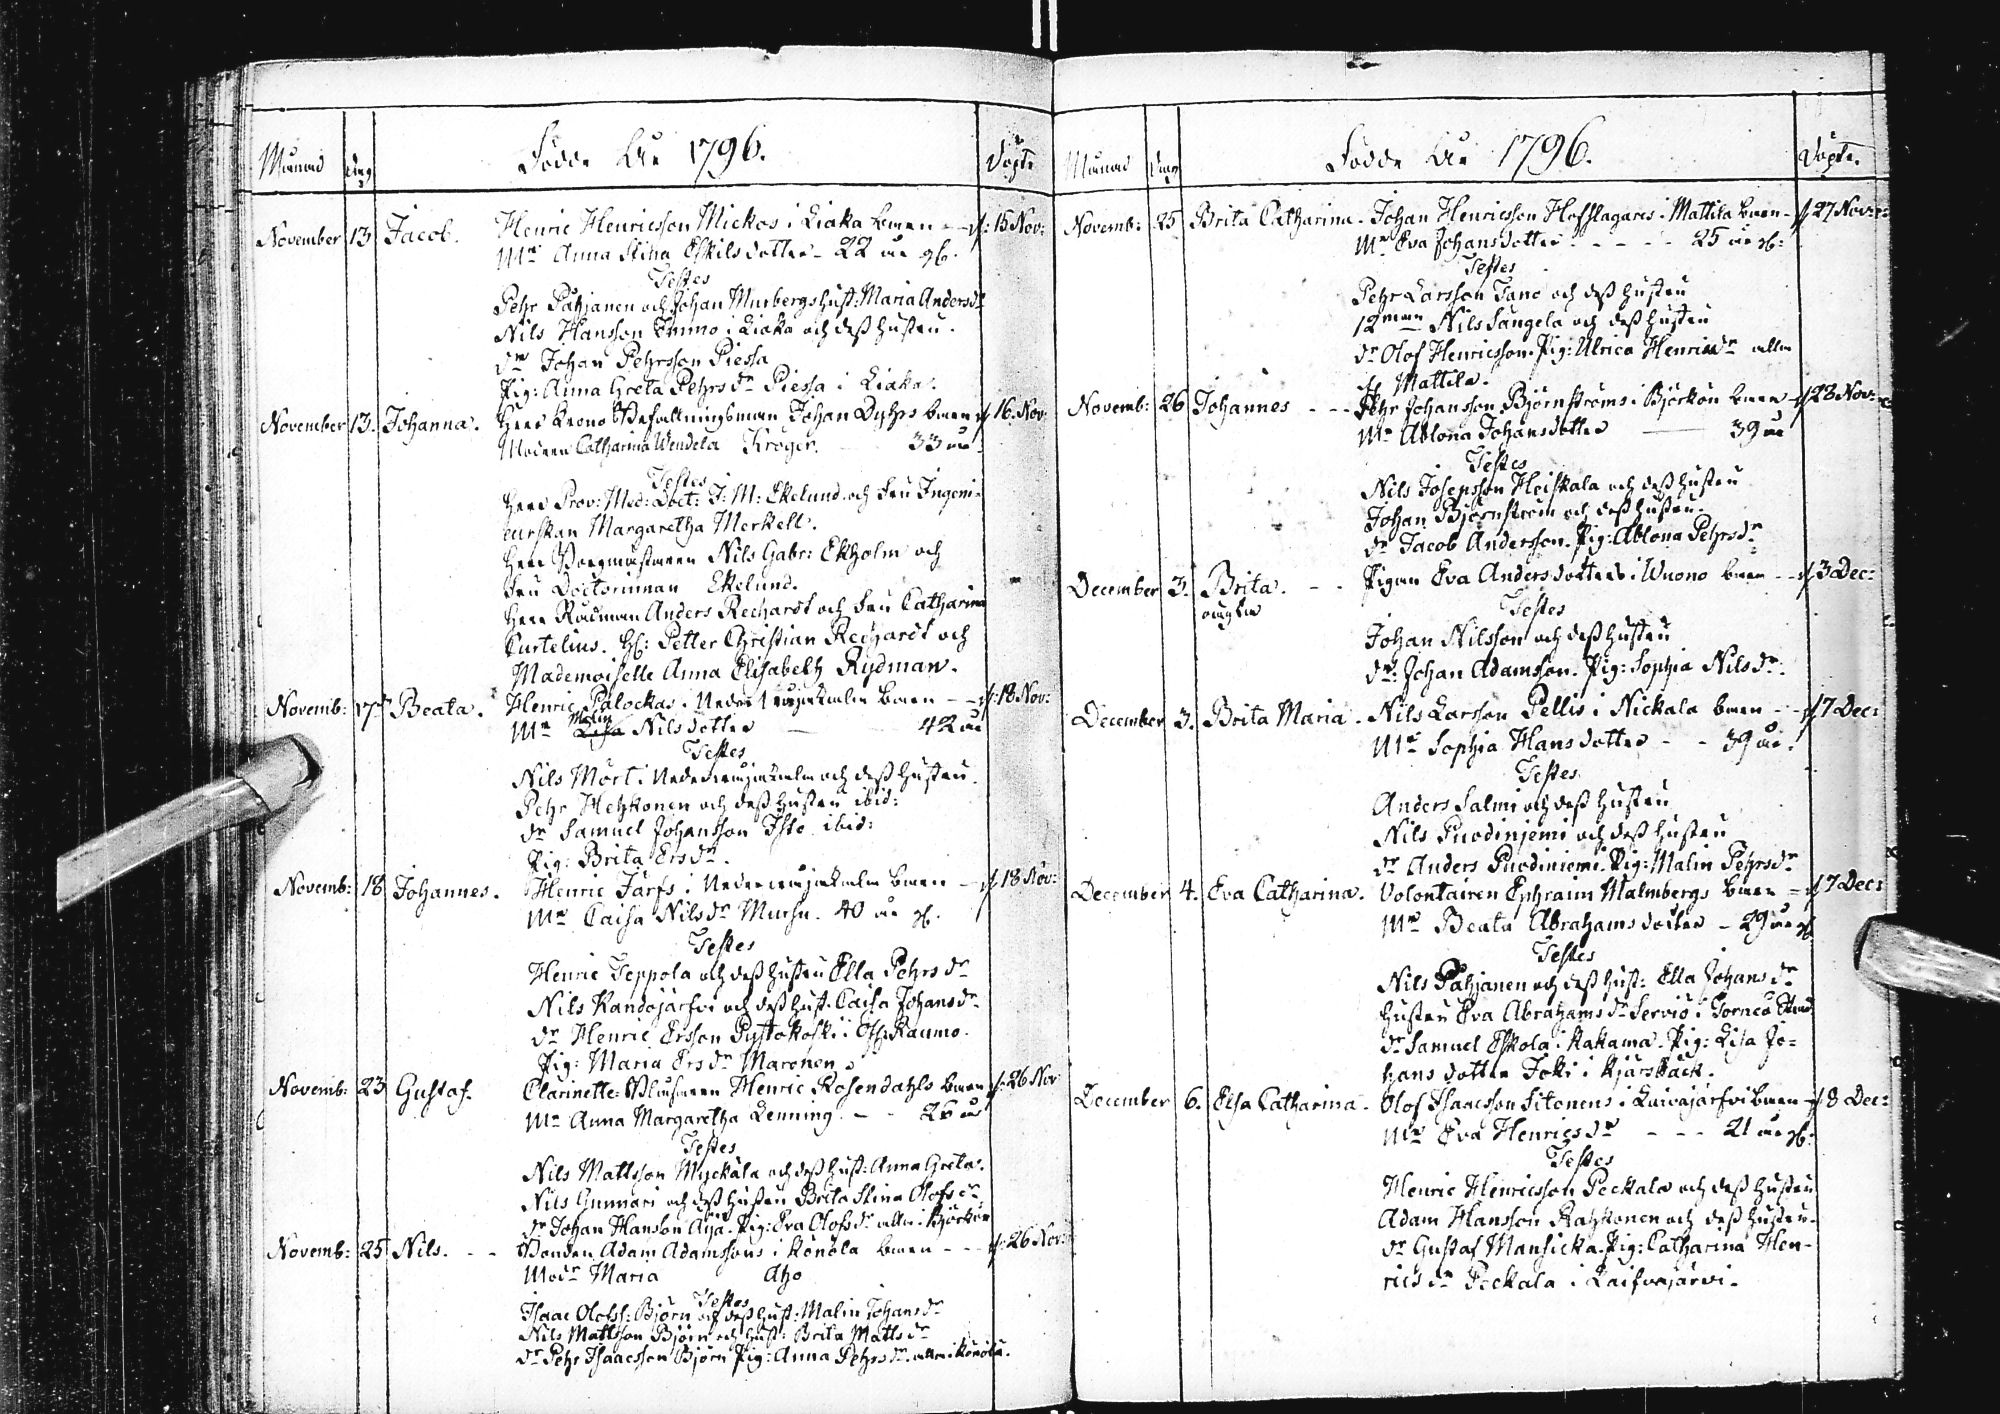 Månad Dag Födde År 1796. Döpte
November 13 Jacob. Henric Henricsson Mickos i Liaka barn - d: 15 Nov:
Mr Anna Stina Eskilsdotter - 22 år gl.
Testes
Pehr Pähjanen och Johan Murbergs hust: Maria Andersdr
Nils Hansson Immo i Liaka och dess hustru.
Dr Johan Pehrsson Piessa
Pig: Anna Greta Pehrsdr Piessa i Liaka.
November 13. Johanna. Herr Krono Befallningsman Johan Dyhrs barn d 16. Nov:
Modren Catharina Wendela Kröger. 33 år.
Testes
Herr Prov: Med: Doct: J: M: Ekelund och Fru Ingeni-
eurskan Margaretha Merkell.
Herr Borgmästaren Nils Gabr: Ekholm och
Fru Doctorinnan Ekelund.
Herr Rådman Anders Rechardt och Fru Catharina
Curtelius. H: Petter Christian Rechardt och
Mademoiselle Anna Elisabeth Rydman.
Novemb: 17 Beata. Henric Palockas i barn - d: 18 Nov:
Mr Malin Nilsdotter 42 år
Testes
Nils Mört i och dess hustru.
Pehr Hehkonen och dess hustru ibid:
Dr Samuel Johansson Isto ibid:
Pig: Brita Ersdr.
Novemb: 18 Johannes. Henric Järfs i barn - d 18 Nov:
Mr Caisa Nilsdr 40 år gl.
Testes
Henric Teppola och dess hustru Ella Pehrsdr
Nils Kandojärfvi och dess hust. Caisa Johansdr
Dr Henric Ersson Pyttokoski i Öf: Raumo.
Pig: Maria Ersdr Maronen
Novemb: 23 Gustaf. Clarinette-Blåsaren Henric Rosendahls barn d: 26 Nov
Mr Anna Margaretha Lenning. - 26 år
Testes
Nils Mattsson Myckälä och dess hust: Anna Greta.
Nils Gunnari och dess hustru Brita Stina Olofsdr
Dr Johan Hansson Pig: Eva Olofsdr alla i Björkön
Novemb: 25 Nils. - - Bonden Adam Adamssons i Könölä barn - - d: 26 Nov:
Modr Maria Aho
Testes
Isaac Olofss: Björn och dess hust: Malin Johansdr
Nils Mattsson Björn och hust: Brita Mattsdr
Dr Pehr Isaacsson Björn Pig: Anna Pehrsdr alla i Könölä.
Månad Dag Födde År 1796. Döpte.
Novemb: 25 Brita Catharina. Johan Henricsson Hofslagares i Mattila barn - d 27 Nov:
Mr Eva Johansdotter - - - - 25 år gl:
Testes
Pehr Larsson Tano och dess hustru
12man Nils Sangela och dess hustru
Dr Olof Henricsson. Pig: Ulrica Henricsdr alla
i Mattila.
Novemb: 26 Johannes - - Pehr Johansson Björnströms i Björkön barn - d 28 Nov:
Mr Ablona Johansdotter 39 år
Testes
Nils Josepsson Heiskala och dess hustru
Johan Björnström och dess hustru.
Dr Jacob Andersson. Pig: Ablona Pehrsdr
December 3. Brita. - - Pigan Eva Andersdotters i Wuono barn - - d 3 Dec:
oägta
Testes
Johan Nilsson och dess hustru
Dr: Johan Adamsson. Pig: Sophia Nilsdr.
December 3. Brita Maria. Nils Larsson Pellis i Nickala barn - - d 7 Dec:
Mr Sophia Hansdotter - - 39 år.
Testes
Anders Salmi och dess hustru
Nils Puodinjemi och dess hustru
Dr Anders Puodiniemi. Pig: Malin Pehrsdr
December 4. Eva Catharina. Volontairen Ephraim Malmbergs barn - d 7 Dec:
Mr Beata Abrahamsdotter - 29 år gl
Testes
Nils Pähjanen och dess hust: Ella Johansdr
Hustru Eva Abrahamsdr Servio i Torneå Stad
Dr Samuel Eskola i Kakama. Pig: Lisa Jo=
hansdotter Joki i Kjärsbäck.
December 6. Elsa Catharina. Olof Isaacsson Sitonens i Laivajärfvi barn - d 8 Dec:
Mr Eva Henricsdr - - - 21 år gl:
Testes
Henric Henricsson Peckala och dess hustru
Adam Hansson Rahkonen och dess hustru.
Dr Gustaf Mansicka. Pig: Catharina Hen-
ricsdr Peckala i Laifvajärvi.